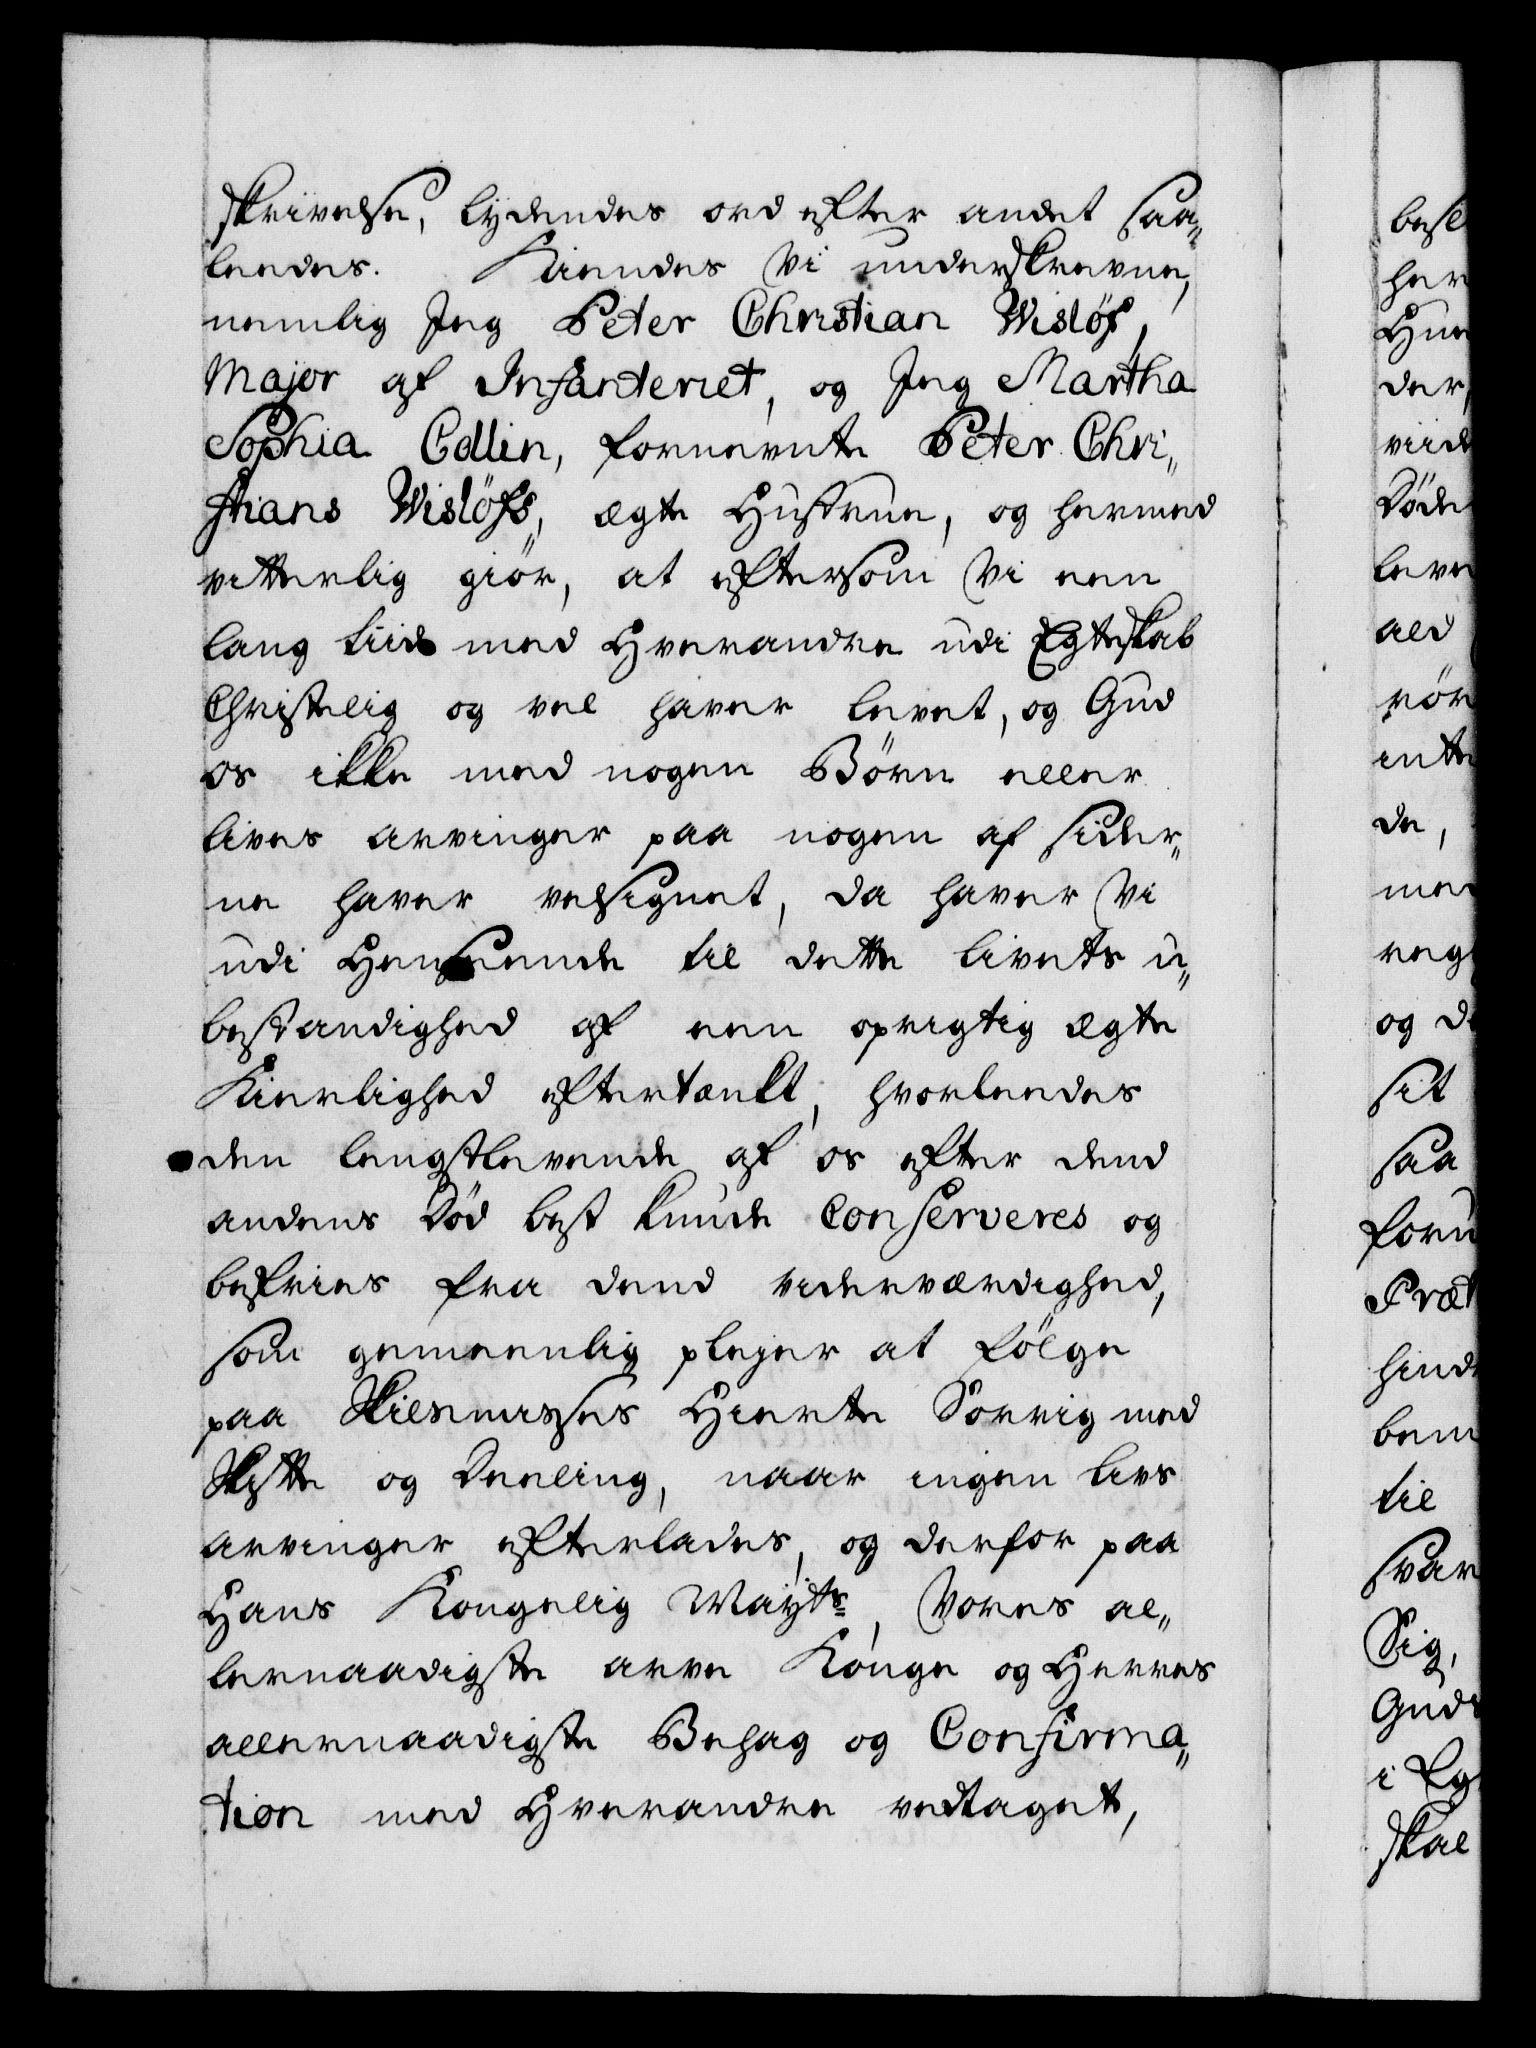 skrivelse, lydendes ord efter andet saa„
leedes. Kiendes Vi underskrevne,
nemlig Jeg Peter Christian Wislöf,
Major af Infanteriet, og Jeg Martha
Sophia Collin, fornevnte Peter Chri„
stians Wislöfs, ægte Hustrue, og hermed
vitterlig giör, at eftersom Vi een
lang tiid med Hverandre udi Egteskab
Christelig og vel haver levet, og Gud
os ikke med nogen Börn eller
livs arvinger paa nogen af sider„
ne haver velsignet, da haver Vi
udi Henseende til dette livets u„
bestandighed af een oprigtig ægte
Kierlighed eftertænkt, hvorleedes
den lengstlevende af os efter dend
andens Död best kunde Conserveres og
befries fra dend viderværdighed,
som gemeenlig plejer at fölge
paa Skilsmisses Hierte Sorrig med
Skifte og Deeling, naar ingen livs
arvinger efterlades, og derfor paa
Hans Kongelig Mayts, Vores al„
lernaadigste arve Konge og Herres
allernaadigste Behag og Confirma„
tion med Hverandre vedtaget,
besl
her
Hun
der,
viid
Döde
leve
ald
rör
inte
de,
med
reg
og d
sit
saa
foru
Præt
hind
bem
til
svar
Sig,
Guds
i Eg
skal